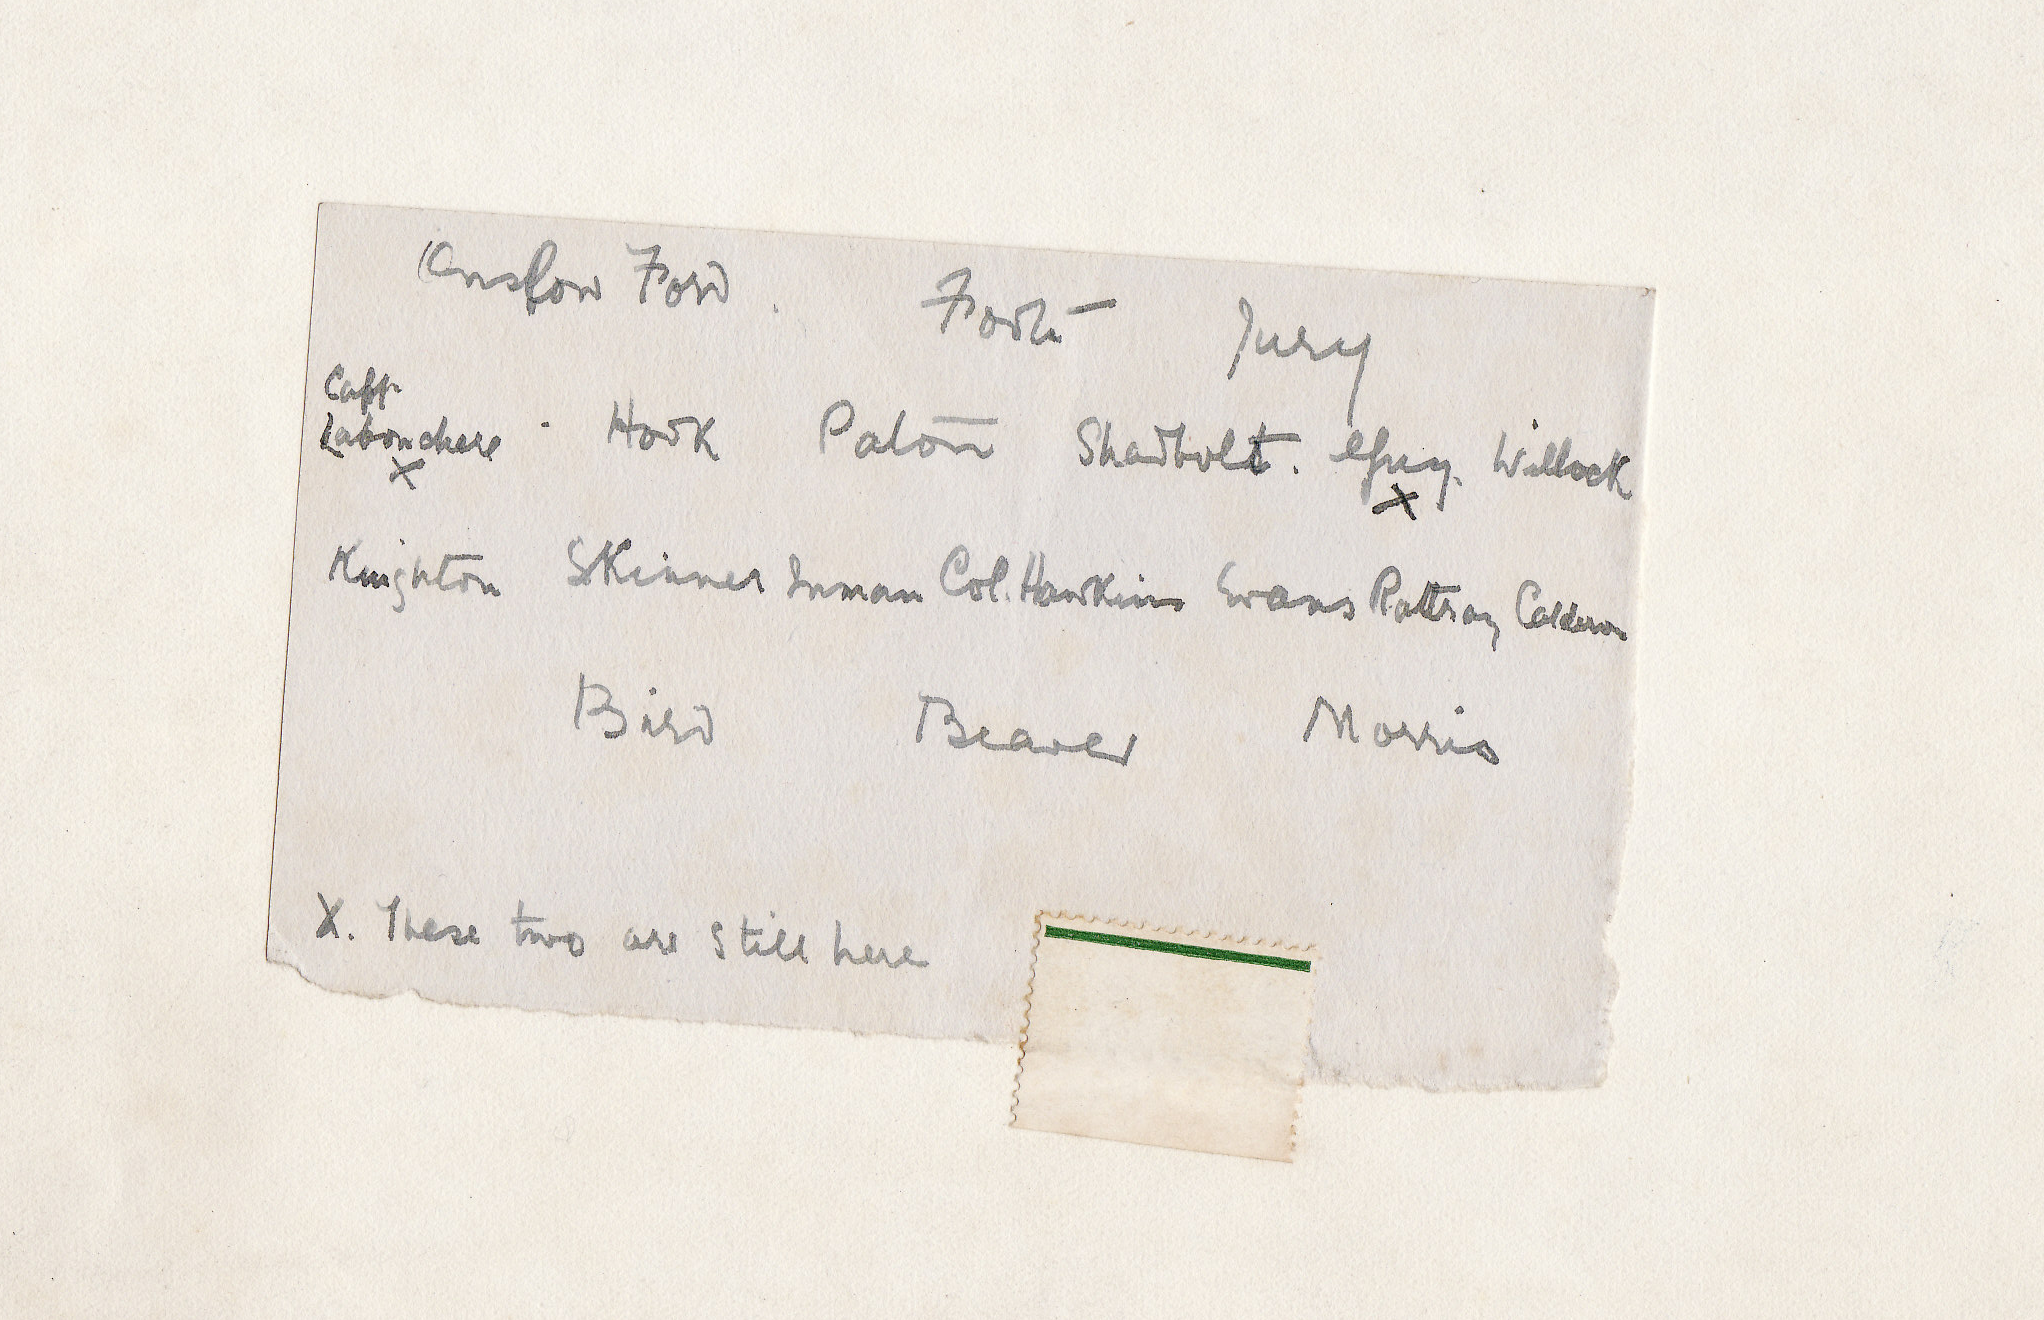 Onslow Ford . Jury
Capt.
Labouchere . Hook Paton Shadbolt. Willock
X X
Knighton Skinner Inman Col. Hawkins Evans Rattray Calderon
Bird Beaver Morris
X. These two are still here